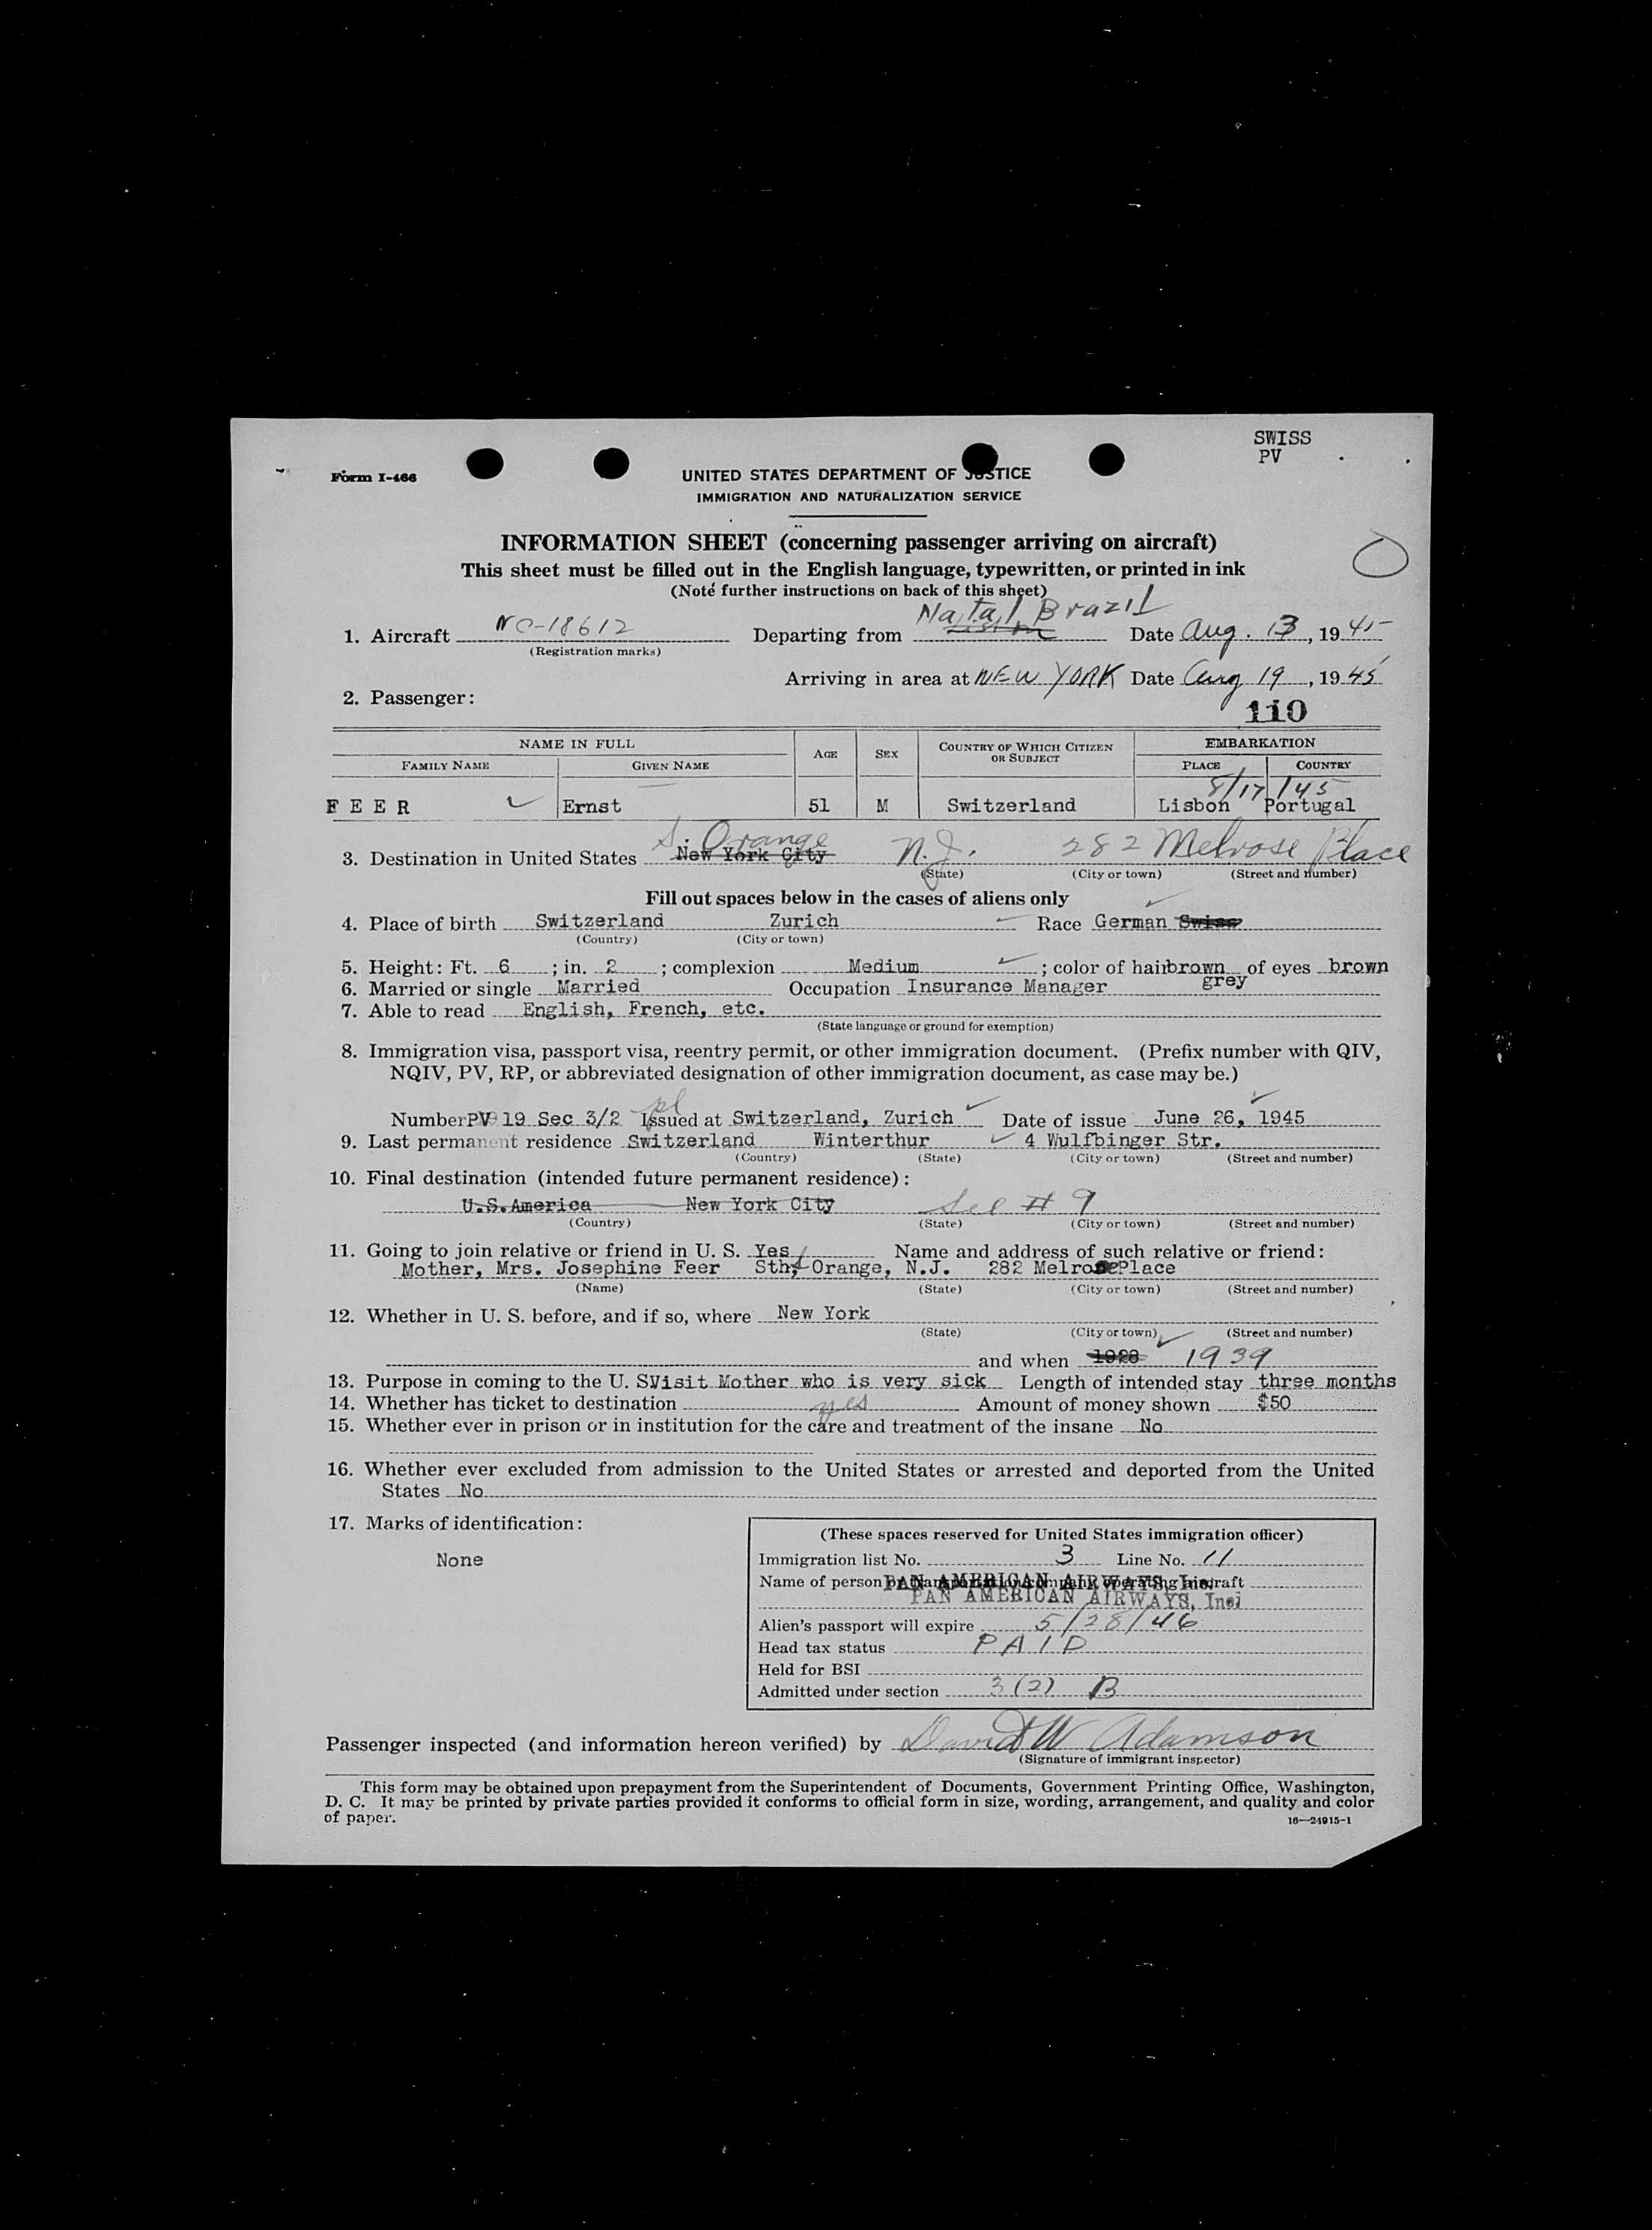 SWISS
PV
Form I-466
UNITED STATES DEPARTMENT OF JUSTICE
IMMIGRATION AND NATURALIZATION SERVICE
INFORMATION SHEET (concerning passenger arriving on aircraft)
This sheet must be filled out in the English language, typewritten, or printed in ink
(Note further instructions on back of this sheet)
Natal, Brazil
1. Aircraft NC-18612 Departing from Date Aug. 13, 1945
(Registration marks)
Arriving in area at NEW YORK Date Aug 19, 1945
2. Passenger:
110
NAME IN FULL AGE SEX COUNTRY OF WHICH CITIZEN OR SUBJECT EMBARKATION
FAMILY NAME GIVEN NAME PLACE COUNTRY
8/17/45
FEER Ernst 51 M Switzerland Lisbon Portugal
S. Orange
3. Destination in United States New York City N.J. 282 Melrose Place
(State) (City or town) (Street and number)
Fill out spaces below in the cases of aliens only
4. Place of birth Switzerland Zurich Race German Swiss
(Country) (City or town)
5. Height: Ft. 6; in. 2; complexion Medium; color of hair brown of eyes brown
grey
6. Married or single Married Occupation Insurance Manager
7. Able to read English, French, etc.
(State language or ground for exemption)
8. Immigration visa, passport visa, reentry permit, or other immigration document. (Prefix number with QIV,
NQIV, PV, RP, or abbreviated designation of other immigration document, as case may be.)
Number PV 19 Sec 3/2 Issued at Switzerland, Zurich Date of issue June 26, 1945
9. Last permanent residence Switzerland Winterthur 4 Wulfbinger Str.
(Country) (State) (City or town) (Street and number)
10. Final destination (intended future permanent residence):
U.S.America New York City See # 9
(Country) (State) (City or town) (Street and number)
11. Going to join relative or friend in U. S. Yes Name and address of such relative or friend:
Mother, Mrs. Josephine Feer Sth. Orange, N.J. 282 Melrose Place
(Name) (State) (City or town) (Street and number)
12. Whether in U. S. before, and if so, where New York
(State) (City or town) (Street and number)
and when 1928 1939
13. Purpose in coming to the U. S Visit Mother who is very sick Length of intended stay three months
14. Whether has ticket to destination yes Amount of money shown $50
15. Whether ever in prison or in institution for the care and treatment of the insane No
16. Whether ever excluded from admission to the United States or arrested and deported from the United
States No
17. Marks of identification:
None
(These spaces reserved for United States immigration officer)
Immigration list No. 3 Line No. 11
Name of person or transportation company operating aircraft PAN AMERICAN AIRWAYS, Inc.
PAN AMERICAN AIRWAYS, Inc.
Alien's passport will expire 5/28/46
Head tax status PAID
Held for BSI
Admitted under section 3(2) B
Passenger inspected (and information hereon verified) by David W Adamson
(Signature of immigrant inspector)
This form may be obtained upon prepayment from the Superintendent of Documents, Government Printing Office, Washington,
D. C. It may be printed by private parties provided it conforms to official form in size, wording, arrangement, and quality and color
of paper.
16—24915-1